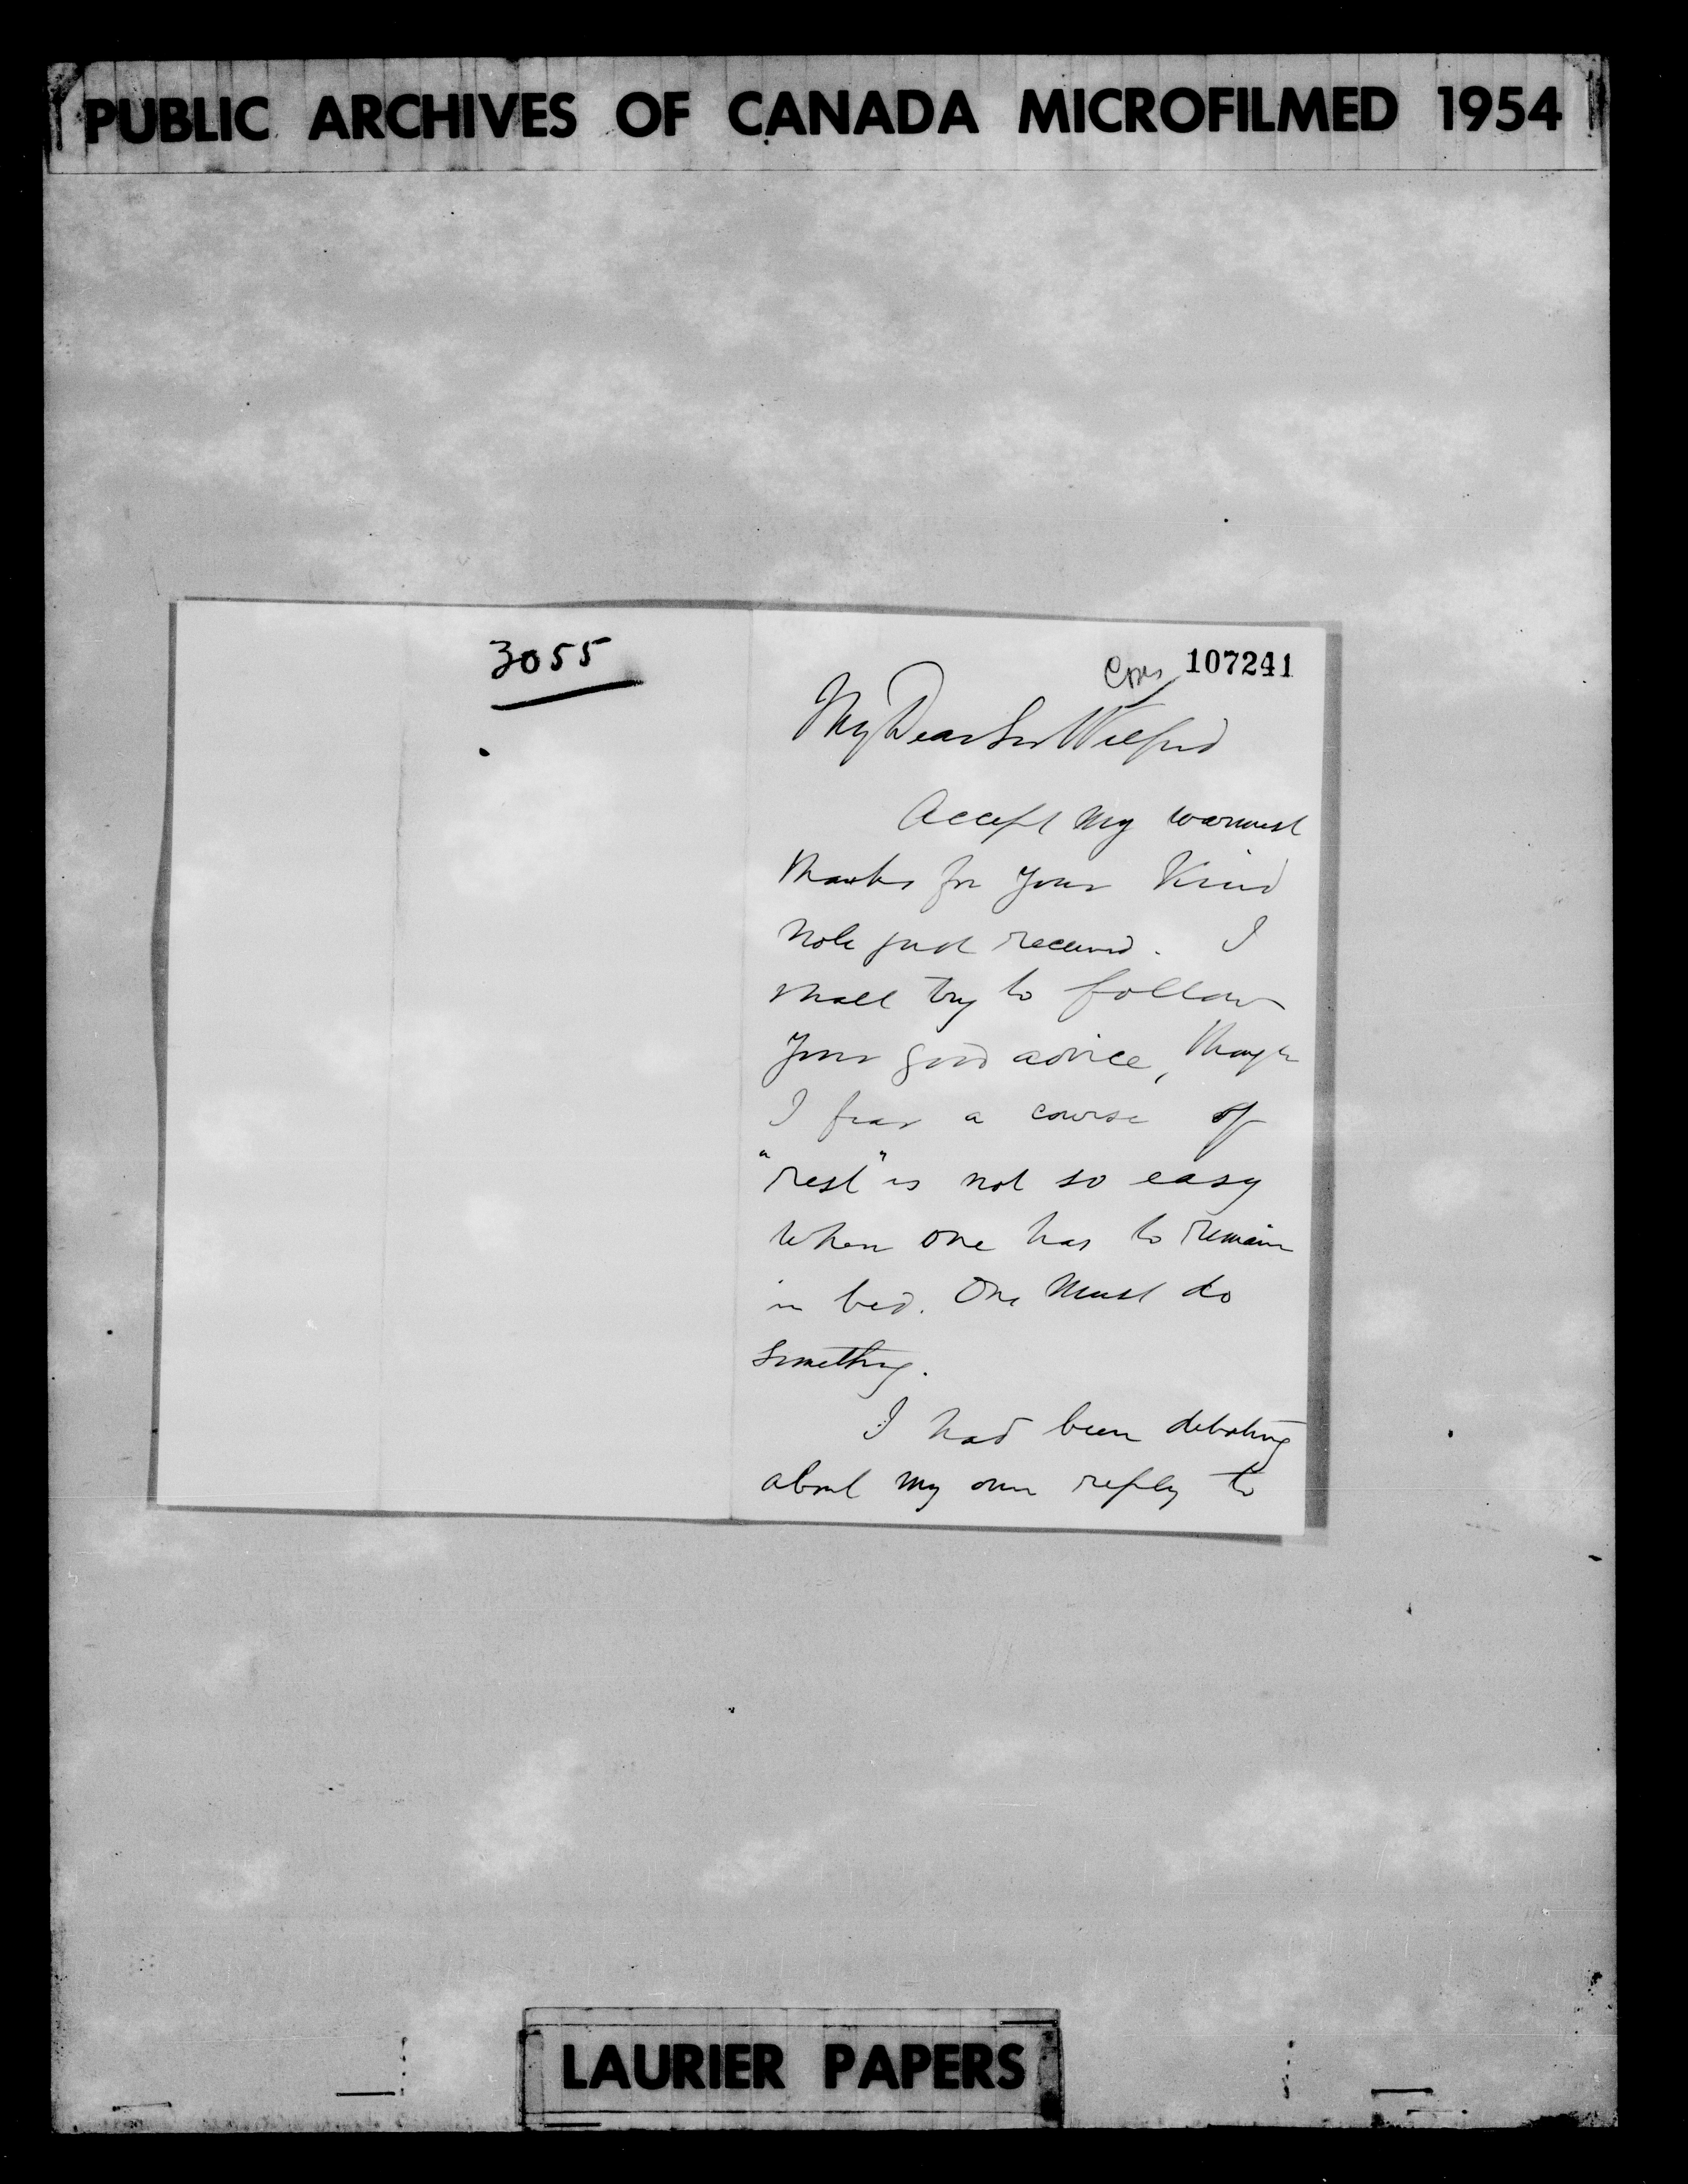 PUBLIC ARCHIVES OF CANADA MICROFILMED 1954
3055
107241
My Dear Sir Wilfrid
Accept my warmest
thanks for your kind
note just received. I
shall try to follow
your good advice, though
I fear a course of
"rest" is not so easy
when one has to remain
in bed. One must do
something.
I had been debating
about my own reply to
LAURIER PAPERS